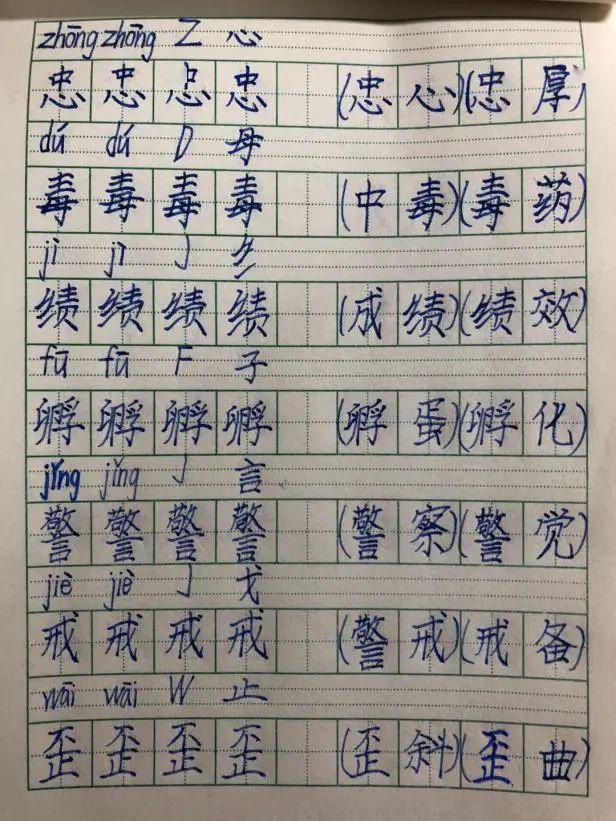 zhōng zhōng Z 心
忠 忠 忠 忠 (忠 心)(忠 厚)
dú dú D 母
毒 毒 毒 毒 (中 毒)(毒 药)
jì jì J 纟
绩 绩 绩 绩 (成 绩)(绩 效)
fū fū F 子
孵 孵 孵 孵 (孵 蛋)(孵 化)
jǐng jǐng J 言
警 警 警 警 (警 察)(警 觉)
jiè jiè J 戈
戒 戒 戒 戒 (警 戒)(戒 备)
wāi wāi W 止
歪 歪 歪 歪 (歪 斜)(歪 曲)